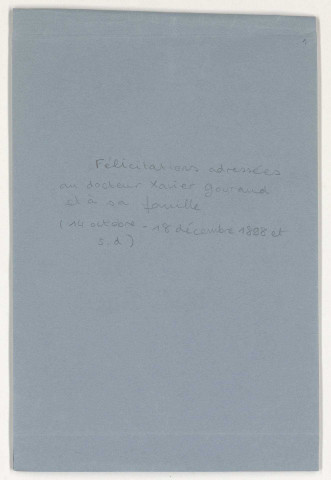 Félicitations adressées
au docteur Xavier Gouraud
et à sa famille
(14 octobre - 18 décembre 1888 et
s.d.)